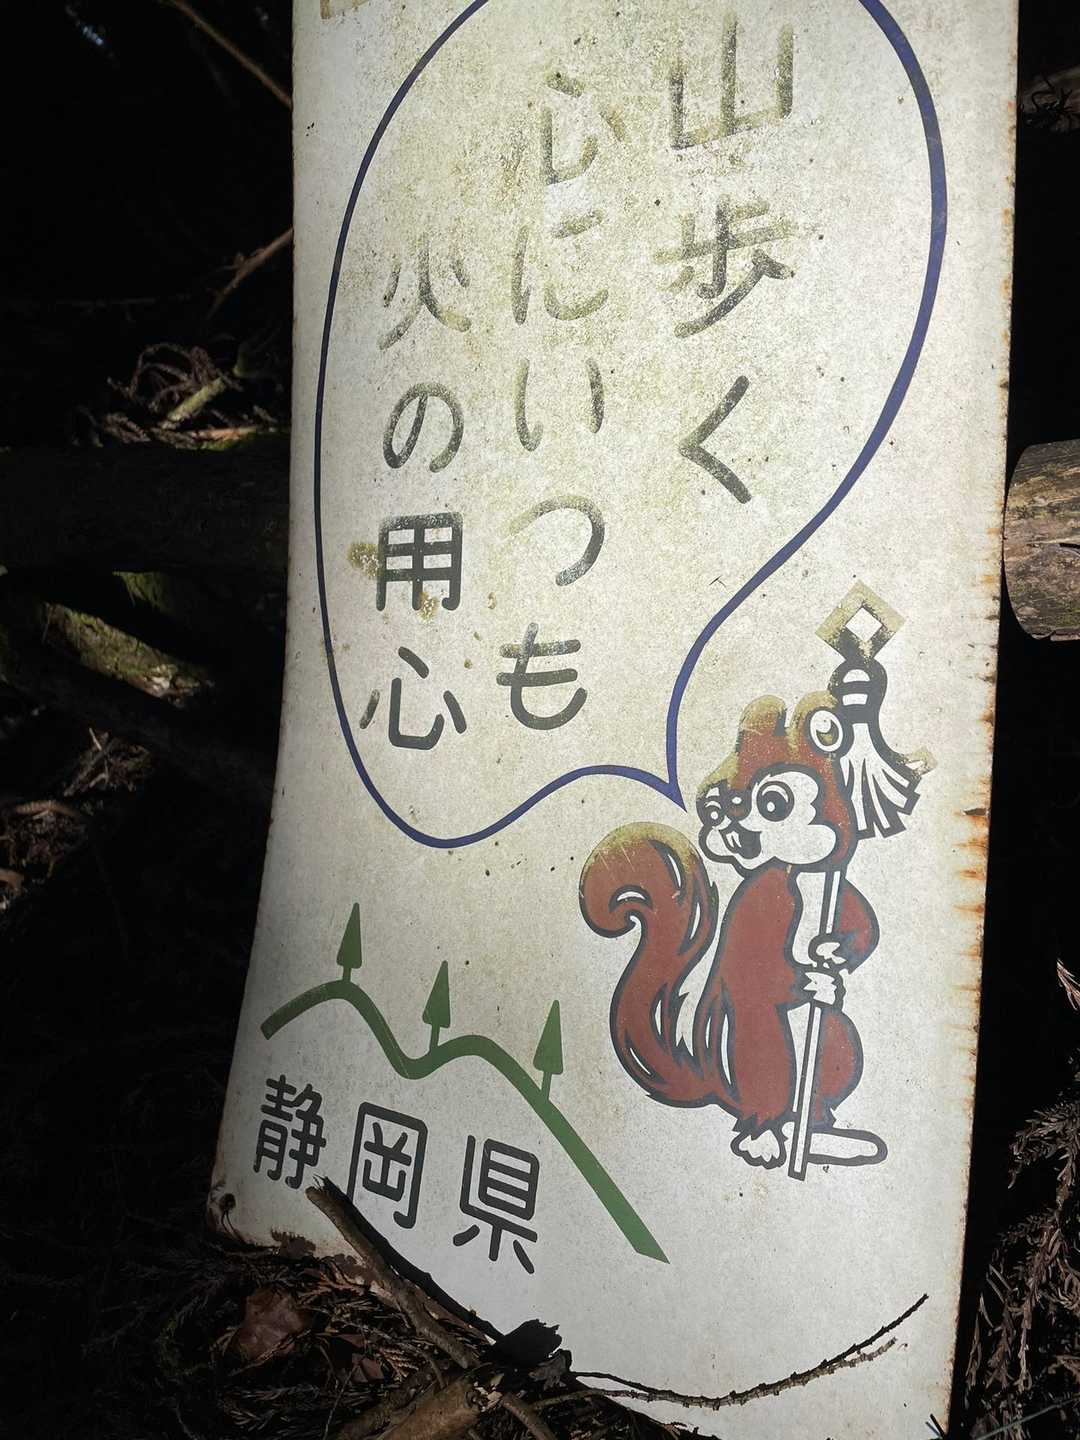 山歩く
心にいつも
火の用心
静岡県